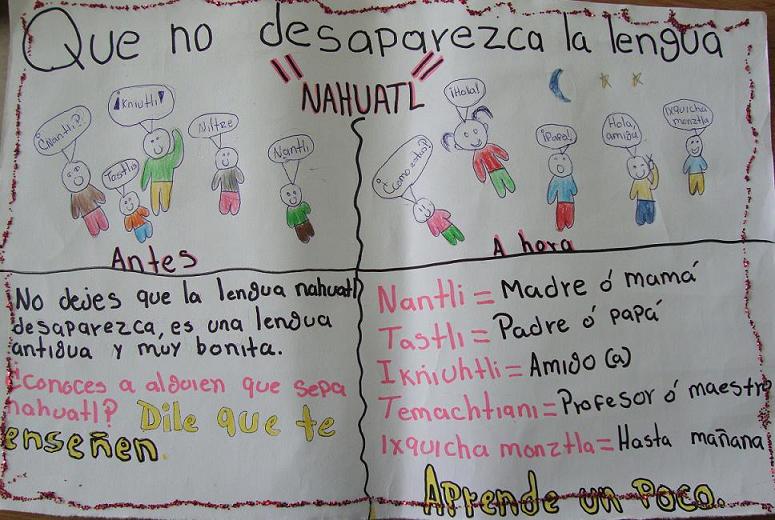 Que no desaparezca la lengua
"NAHUATL"
¿Nantli?
¡kniutli!
Tastli
Niltre
Nantli
¡Hola!
¿Como estas?
¡Papa!
Hola,
amigu
Ixquicha
monztla
Antes
Ahora
No dejes que la lengua nahuatl
desaparezca, es una lengua
antigua y muy bonita.
¿Conoces a alguien que sepa
nahuatl? Dile que te
enseñen.
Nantli = Madre ó mamá
Tastli = Padre ó papá
Ikniuhtli = Amigo (a)
Temachtiani = Profesor ó maestro
Ixquicha monztla = Hasta mañana
Aprende un Poco.